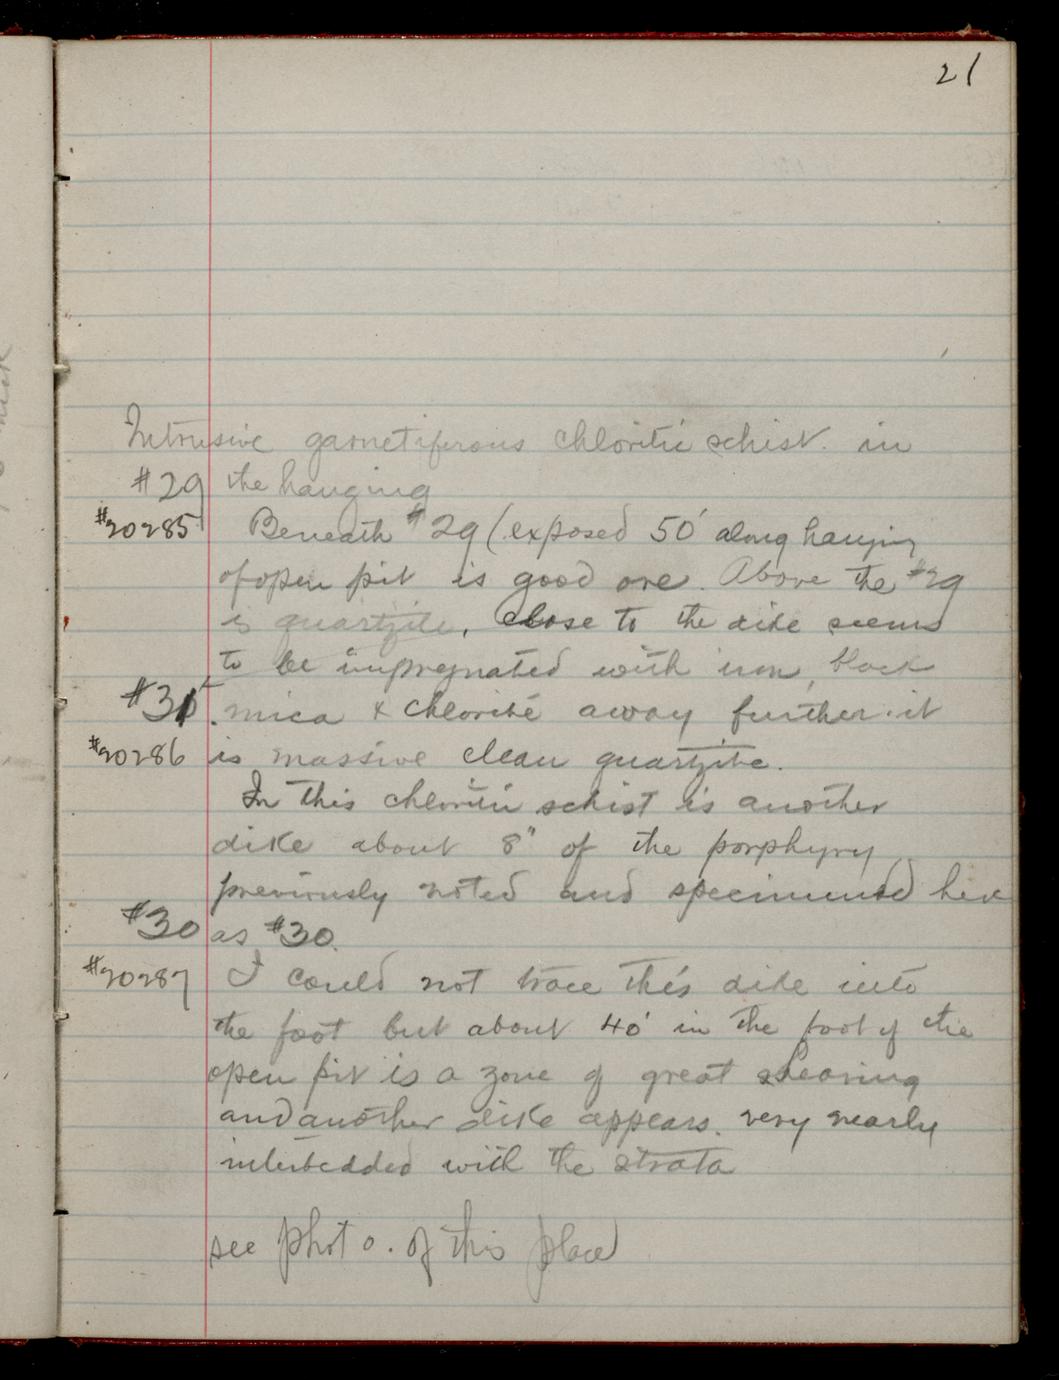 21
Intrusive garnetiferous chloritic schist. in
#29 the hanging
#20285 Beneath #29 (exposed 50' along hanging
of open pit is good ore. Above the #29
is quartzite, close to the dike seems
to be impregnated with iron, black
#31 mica & chlorite away further it
#20286 is massive clean quartzite.
In this chloritic schist is another
dike about 8" of the porphyry
previously noted and specimened here
#30 as #30.
#20287 I could not trace this dike into
the foot but about 40' in the foot of the
open pit is a zone of great shearing
and another dike appears. very nearly
interbedded with the strata
see photo. of this place